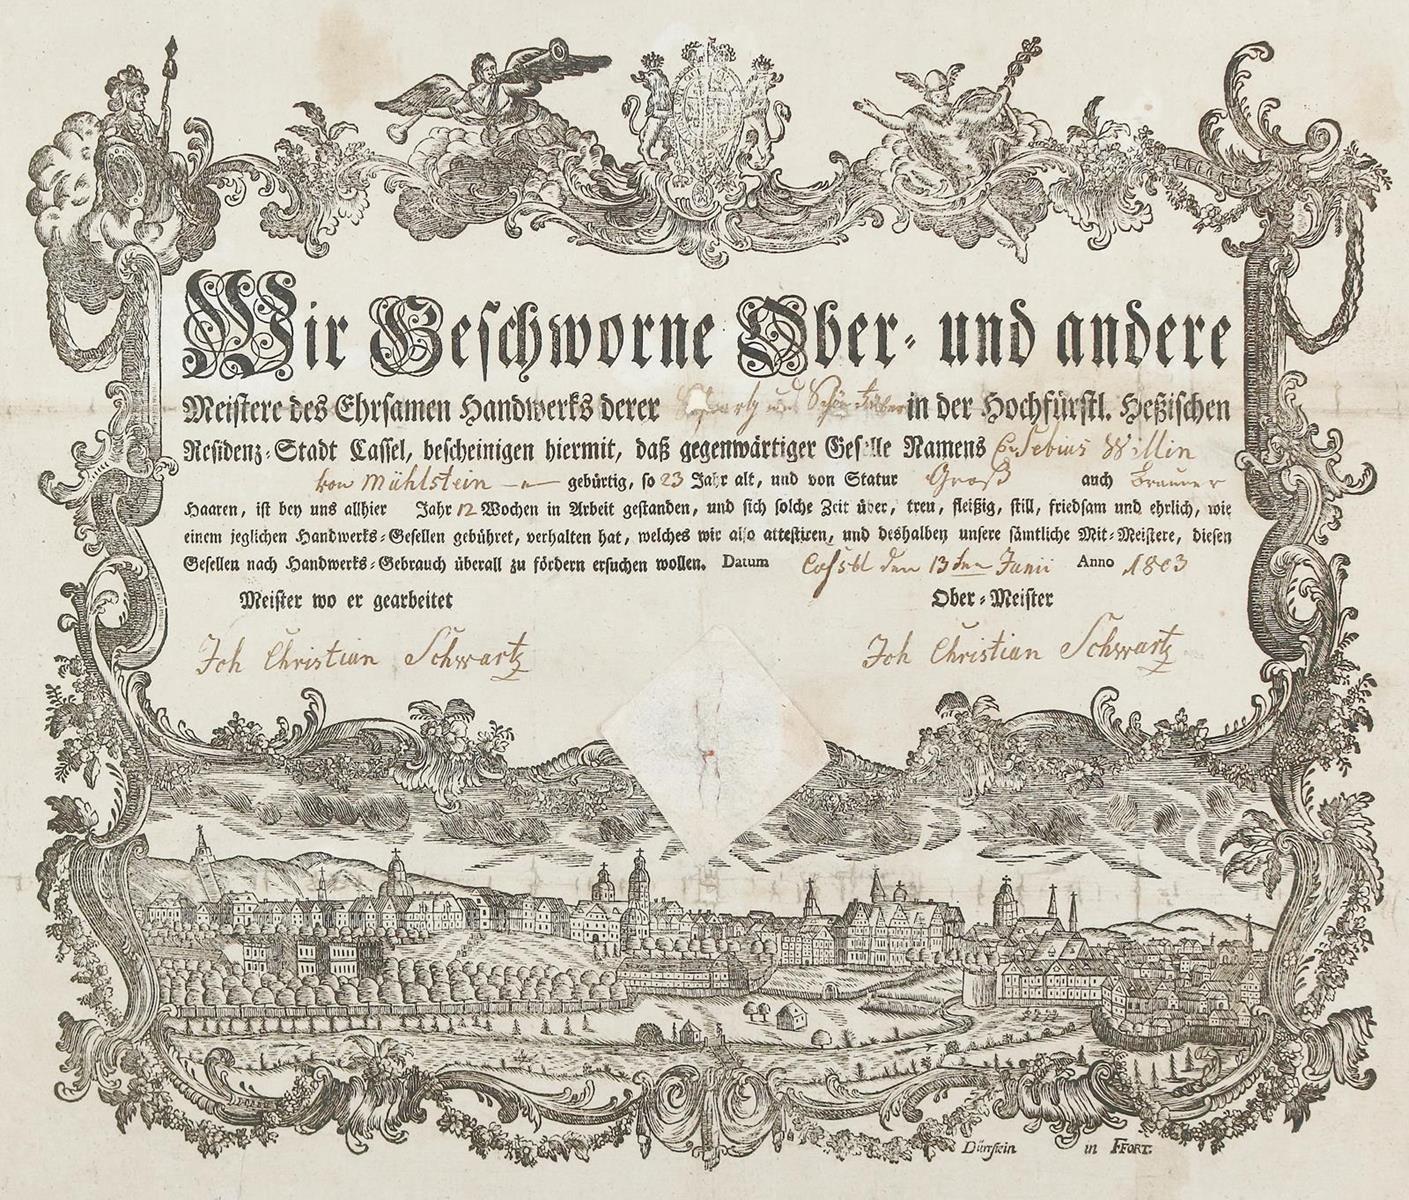 Wir Geschworne Ober- und andere
Meistere des Ehrsamen Handwerks derer Schwartz und Schön färber in der Hochfürstl. Heßischen
Residenz-Stadt Cassel, bescheinigen hiermit, daß gegenwärtiger Geselle Namens Willin
von Mühlstein gebürtig, so 23 Jahr alt, und von Statur Groß auch Brauner
Haaren, ist bey uns allhier Jahr 12 Wochen in Arbeit gestanden, und sich solche Zeit über, treu, fleißig, still, friedsam und ehrlich, wie
einem jeglichen Handwerks-Gesellen gebühret, verhalten hat, welches wir also attestiren, und deshalben unsere sämtliche Mit-Meistere, diesen
Gesellen nach Handwerks-Gebrauch überall zu fördern ersuchen wollen. Datum Cassel den 13ten Junii Anno 1803
Meister wo er gearbeitet Ober-Meister
Joh Christian Schwartz Joh Christian Schwartz
Dürrstein in FFORT.